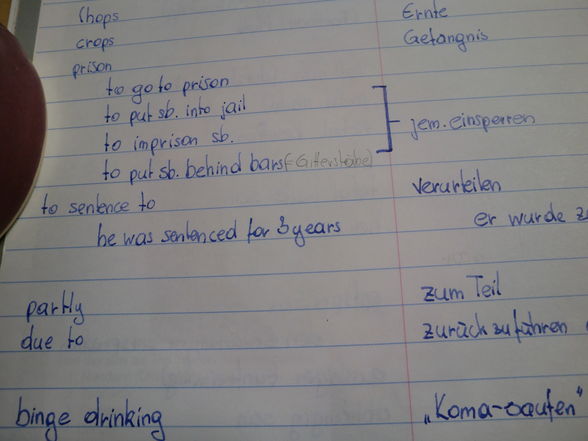 Chops
crops Ernte
prison Gefängnis
to go to prison
to put sb. into jail
to imprison sb. jem. einsperren
to put sb. behind bars (Gitterstäbe)
to sentence to verurteilen
he was sentenced for 3 years er wurde z
partly zum Teil
due to zurückzuführen
binge drinking „Koma-saufen"